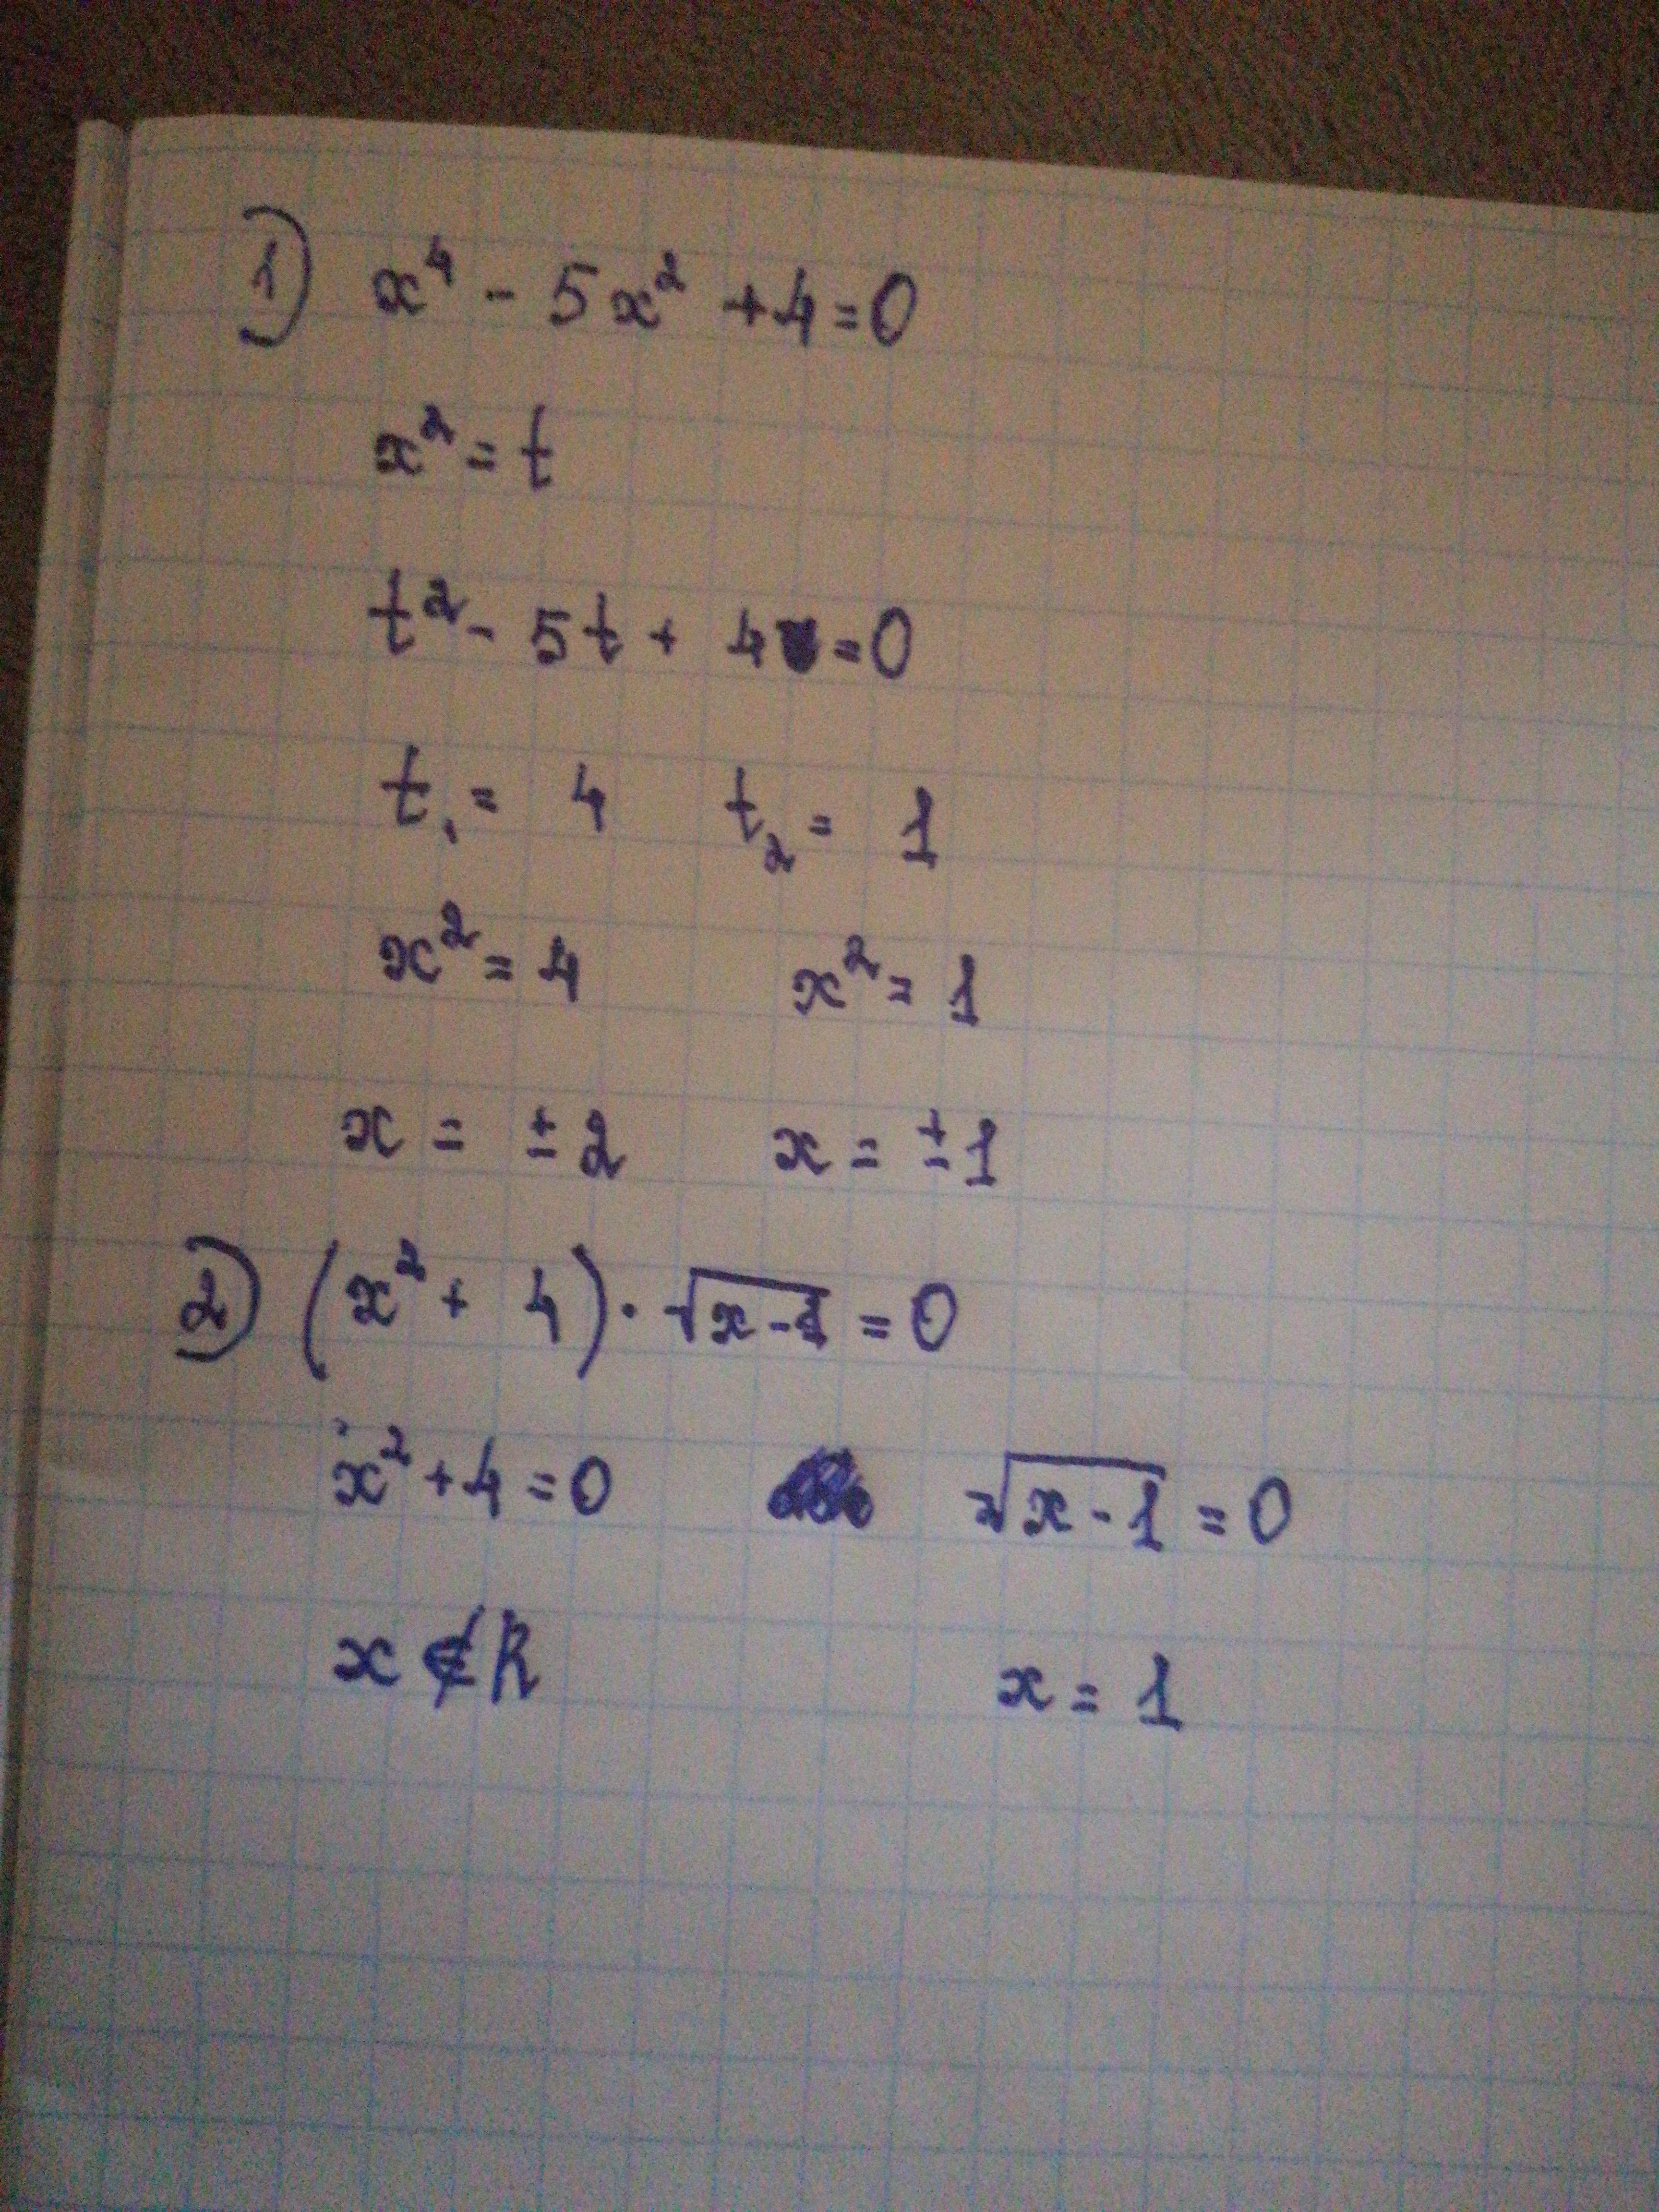 1) x⁴ - 5x² + 4 = 0
x² = t
t² - 5t + 4 = 0
t₁ = 4 t₂ = 1
x² = 4 x² = 1
x = ± 2 x = ± 1
2) (x² + 4) · √(x-1) = 0
x² + 4 = 0 √(x - 1) = 0
x ∉ R x = 1